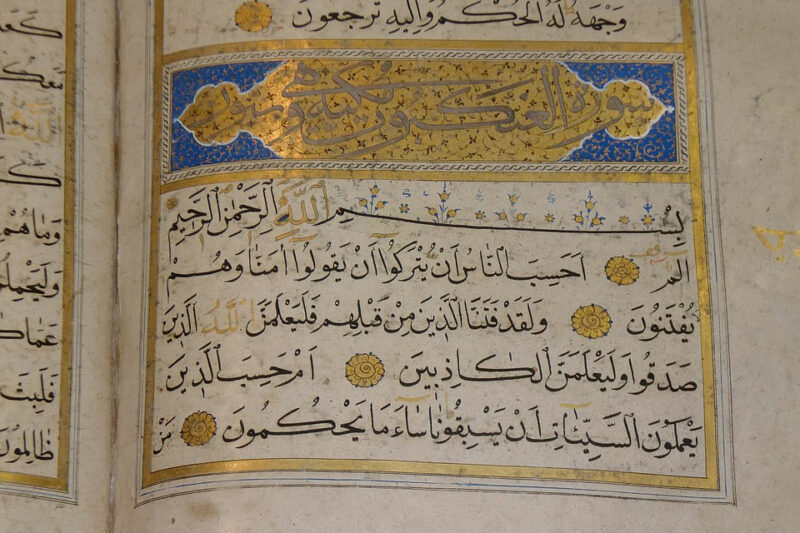 وَجْهَهُ لَهُ الْحُكْمُ وَاِلَيْهِ تُرْجَعُونَ
سورة العنكبوت مكية وهي
بِسْمِ اللّٰهِ الرَّحْمٰنِ الرَّحِيمِ
الم اَحَسِبَ النَّاسُ اَنْ يُتْرَكُوا اَنْ يَقُولُوا اٰمَنَّا وَهُمْ
يُفْتَنُونَ وَلَقَدْ فَتَنَّا الَّذِينَ مِنْ قَبْلِهِمْ فَلَيَعْلَمَنَّ اللّٰهُ الَّذِينَ
صَدَقُوا وَلَيَعْلَمَنَّ الْكَاذِبِينَ اَمْ حَسِبَ الَّذِينَ
يَعْمَلُونَ السَّيِّئَاتِ اَنْ يَسْبِقُونَا سَاءَ مَا يَحْكُمُونَ مَنْ
مَعَكُمْ
وَمَا هُمْ
عَمَّا
فَلَبِثَ
ظَالِمُونَ